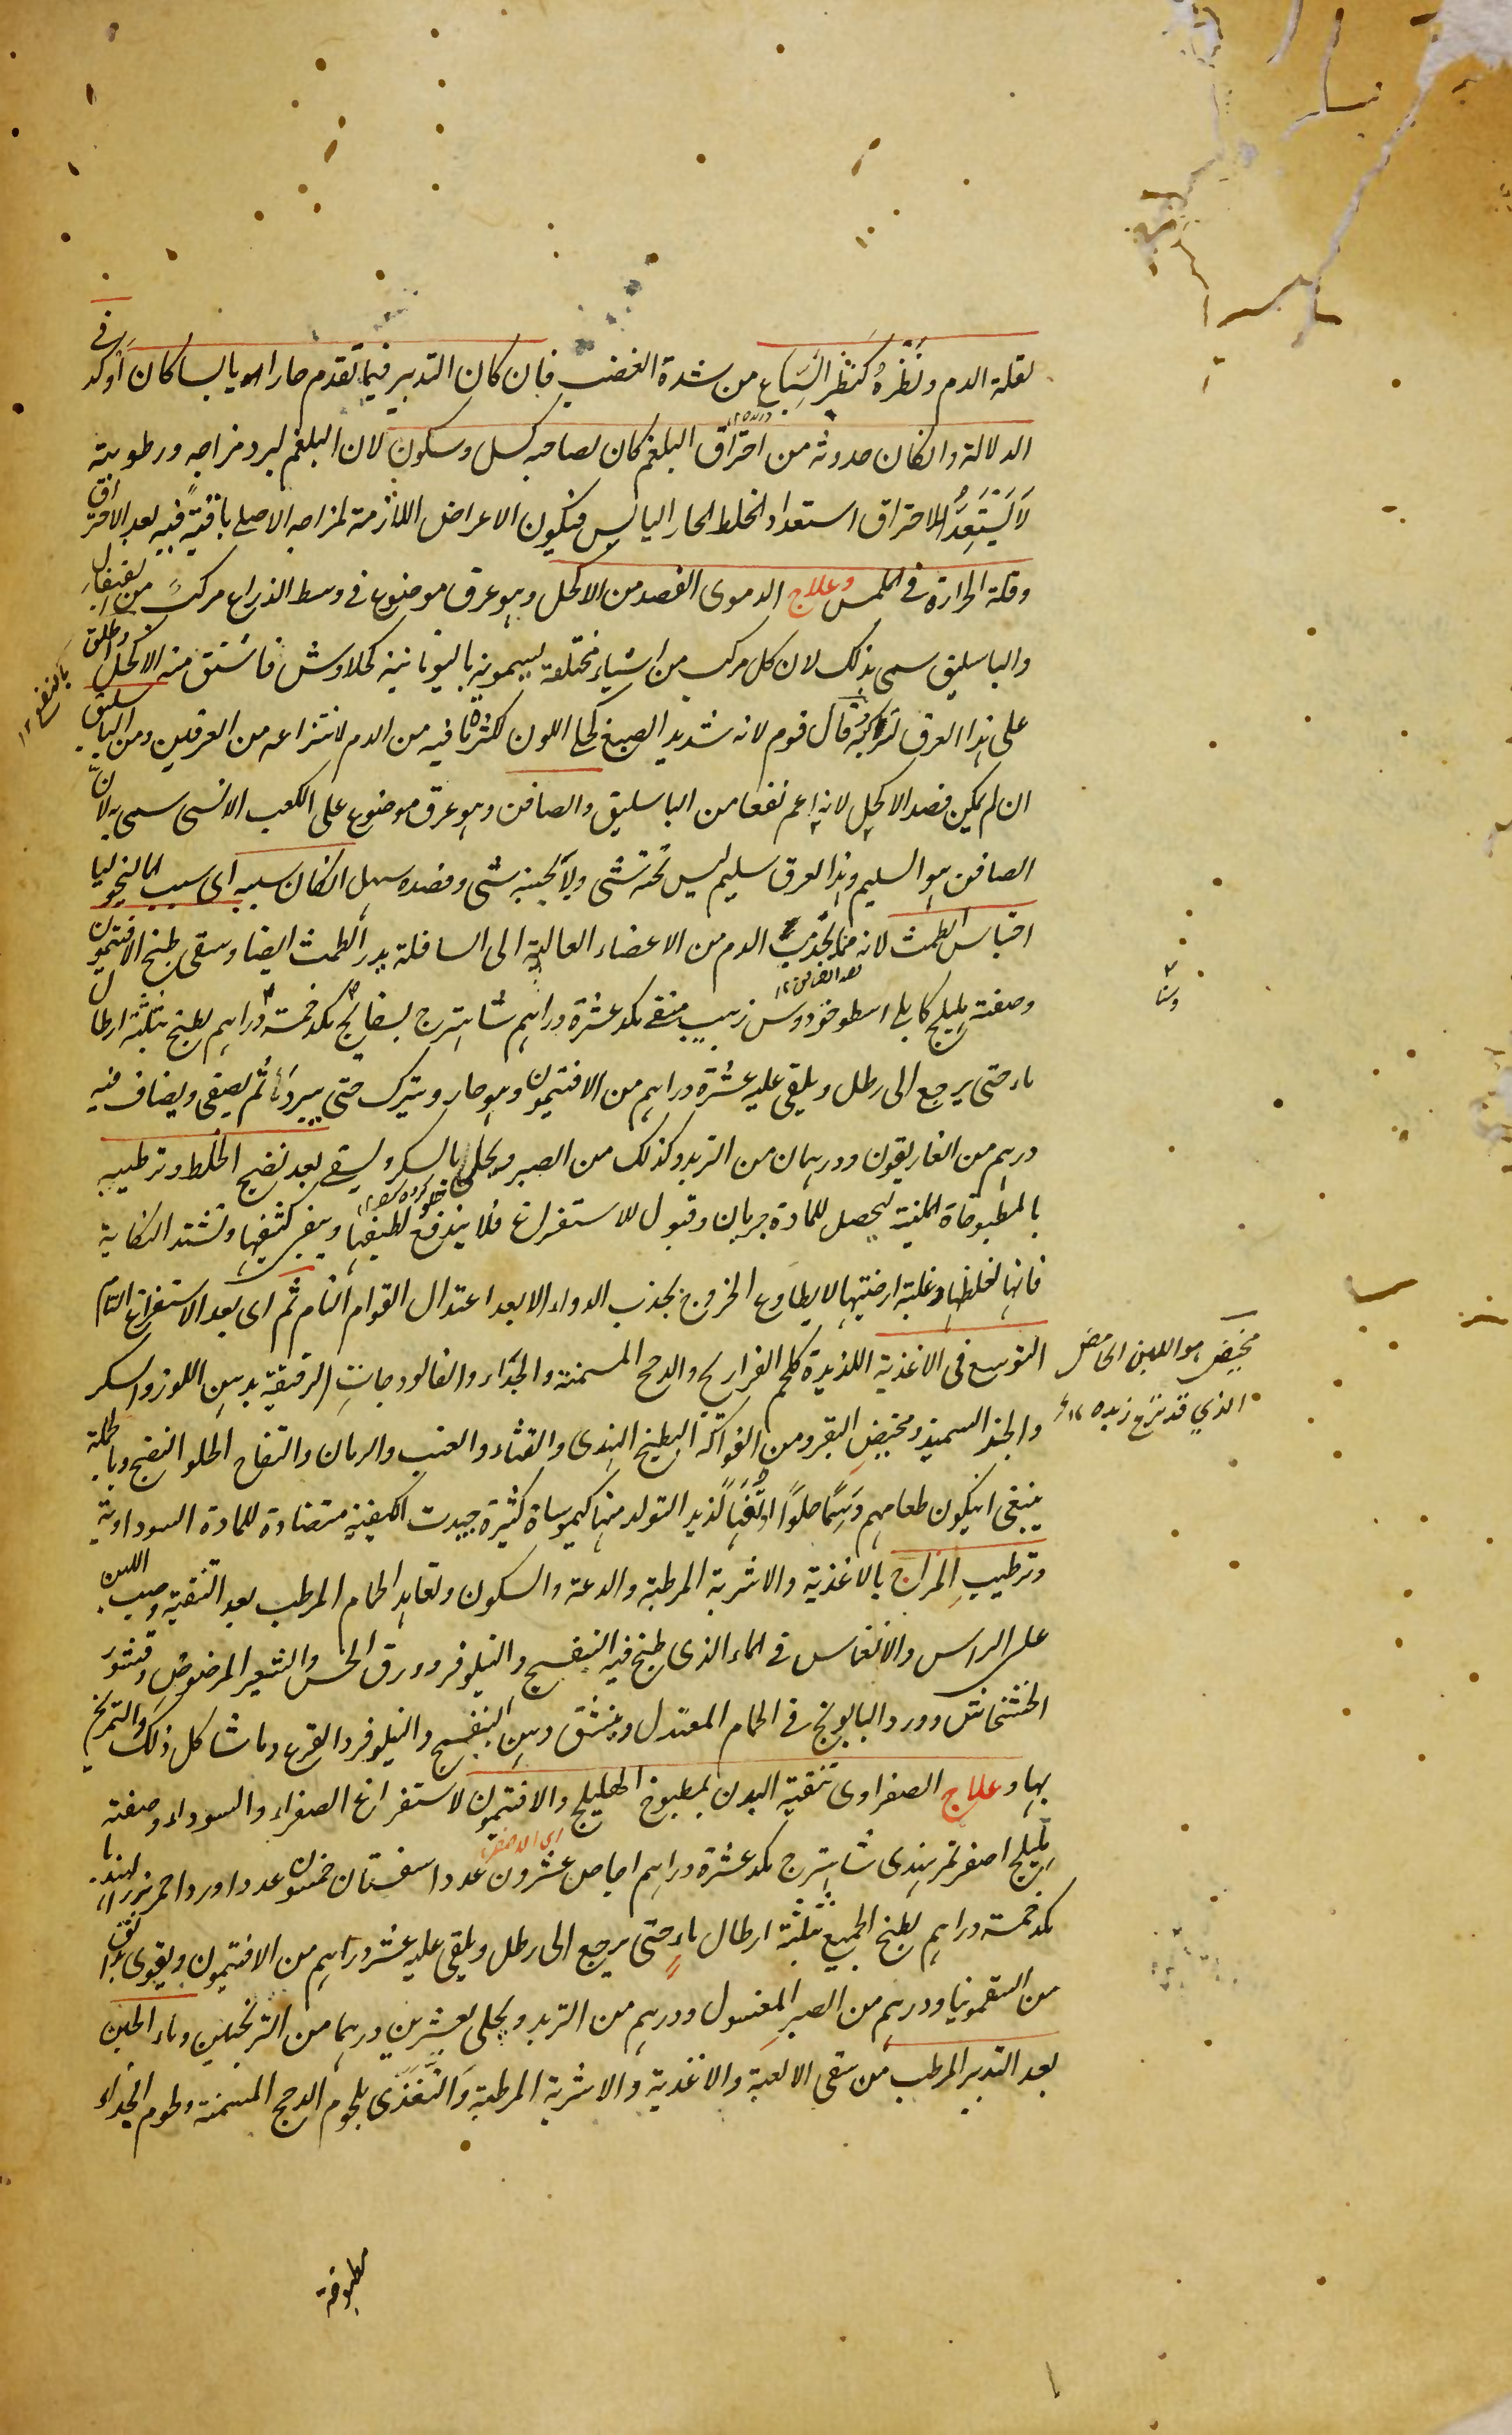 لقلة الدم ونَظْرُهُ كنَظَر السَّبَاع من شدة الغضب فان كان التدبير فيما تقدم حارا او يابسا كان أوكد في
الدلالة وانكان حدوثه من احتراق البلغم كان لصاحبه كسل وسكون لان البلغم لبرد مزاجه ورطوبته
لا يَسْتَعِدُّ للاحتراق استعداد الخلط الحار اليابس فيكون الاعراض اللازمة لمزاجه الاصلي باقيةً فيه بعد الاحتراق
وقلة الحرارة في الملمس وعلاج الدموى الفصد من الاكحل وهو عرق موضوع في وسط الذراع مركب من القيفال
والباسليق سمى بذلك لان كل مركب من اشياء مختلفة يسمونه باليونانية كحلاوش فاشتق منه الاكحل واطلق
على هذا العرق لتركبه قال قوم لانه شديد الصبغ كحلى اللون لكثرة ما فيه من الدم لانتزاعه من العرقين ومن الباسليق
ان لم يمكن فصد الاكحل لانه اعم نفعا من الباسليق والصافن وهو عرق موضوع على الكعب الانسى سمى به لانّ
الصافن هو السليم وهذا العرق سليم ليس تحته شئ ولا بجنبه شئ وفصده سهل انكان سببه اى سبب الماليخوليا
احتباس الطمث لانه مما يجذب الدم من الاعضاء العالية الى السافلة يدر الطمث ايضا وسقى طبخ الافتيمون
وصفته هليلج كابلى اسطوخودوس زبيب منقى مكد عشرة دراهم شاهترج بسفائج مكد خمسة دراهم يطبخ بثلثة ارطال
ماء حتى يرجع الى رطل ويلقى عليه عشرة دراهم من الافتيمون وهو حار ويترك حتى يبرد ماءً ثم يصفى ويضاف فيه
درهم من الغاريقون ودرهمان من التربد وكذلك من الصبر ويحلى بالسكر ويسقى بعد نضج الخلط وترطيبه
بالمطبوخاة الملينة ليحصل للمادة جريان وقبول للاستفراغ فلا يندفع لطيفها ويبقى كثيفها وتشتد النكاية
فانها لغلظها وغلبة ارضيتها لا يطاوع الخروج بجذب الدواء الا بعد اعتدال القوام التام ثم اى بعد الاستفراغ التام
التوسع في الاغذية اللذيذة كلحم الفراريج والدجج المسمنة والجداء والفالودجات الرقيقة بدهن اللوز والسكر
والخبز السميذ ومخيض البقر ومن الفواكه البطيخ الهندى والقثاء والعنب والرمان والتفاح الحلو النضج وبالجملة
ينبغى ان يكون طعامهم دَسِمًا حلوًا او تَفِهًا لذيذ التولد منها كيموساة كثيرة جيدت الكيفية متضادة للمادة السوداوية
وترطيب المزاج بالاغذية والاشربة المرطبة والدعة والسكون وتعاهد الحمام المرطب بعد التنقية وصب اللبن
على الراس والانغماس في الماء الذى طبخ فيه البنفسج والنيلوفر وورق الخس والشعير المرضوض وقشور
الخشخاش وورد البابونج في الحمام المعتدل وينشق دهن البنفسج والنيلوفر والقرع وما شاكل ذلك والتمريخ
بها وعلاج الصفراوى تنقية البدن بمطبوخ الهليلج والافتيمون لاستفراغ الصفراء والسوداء وصفته
هليلج اصفر تمر هندى شاهترج مكد عشرة دراهم اجاص عشرون عددا سفستان خمسون عددا ورد احمر بزر الهندبا
مكد خمسة دراهم يطبخ الجميع بثلثة ارطال ماء حتى يرجع الى رطل ويلقى عليه عشر دراهم من الافتيمون ويقوى بدانق
من السقمونيا ودرهم من الصبر المغسول ودرهم من التربد ويحلى بعشرين درهما من الترنجبين وماء الجبن
بعد التدبير المرطب من سقى الالعبة والاغذية والاشربة المرطبة والتغذى بلحوم الدجج المسمنة ولحوم الجداء
مخيض هو اللبن الحامض
الذي قد نزع زبده ١٢
مطبوخة